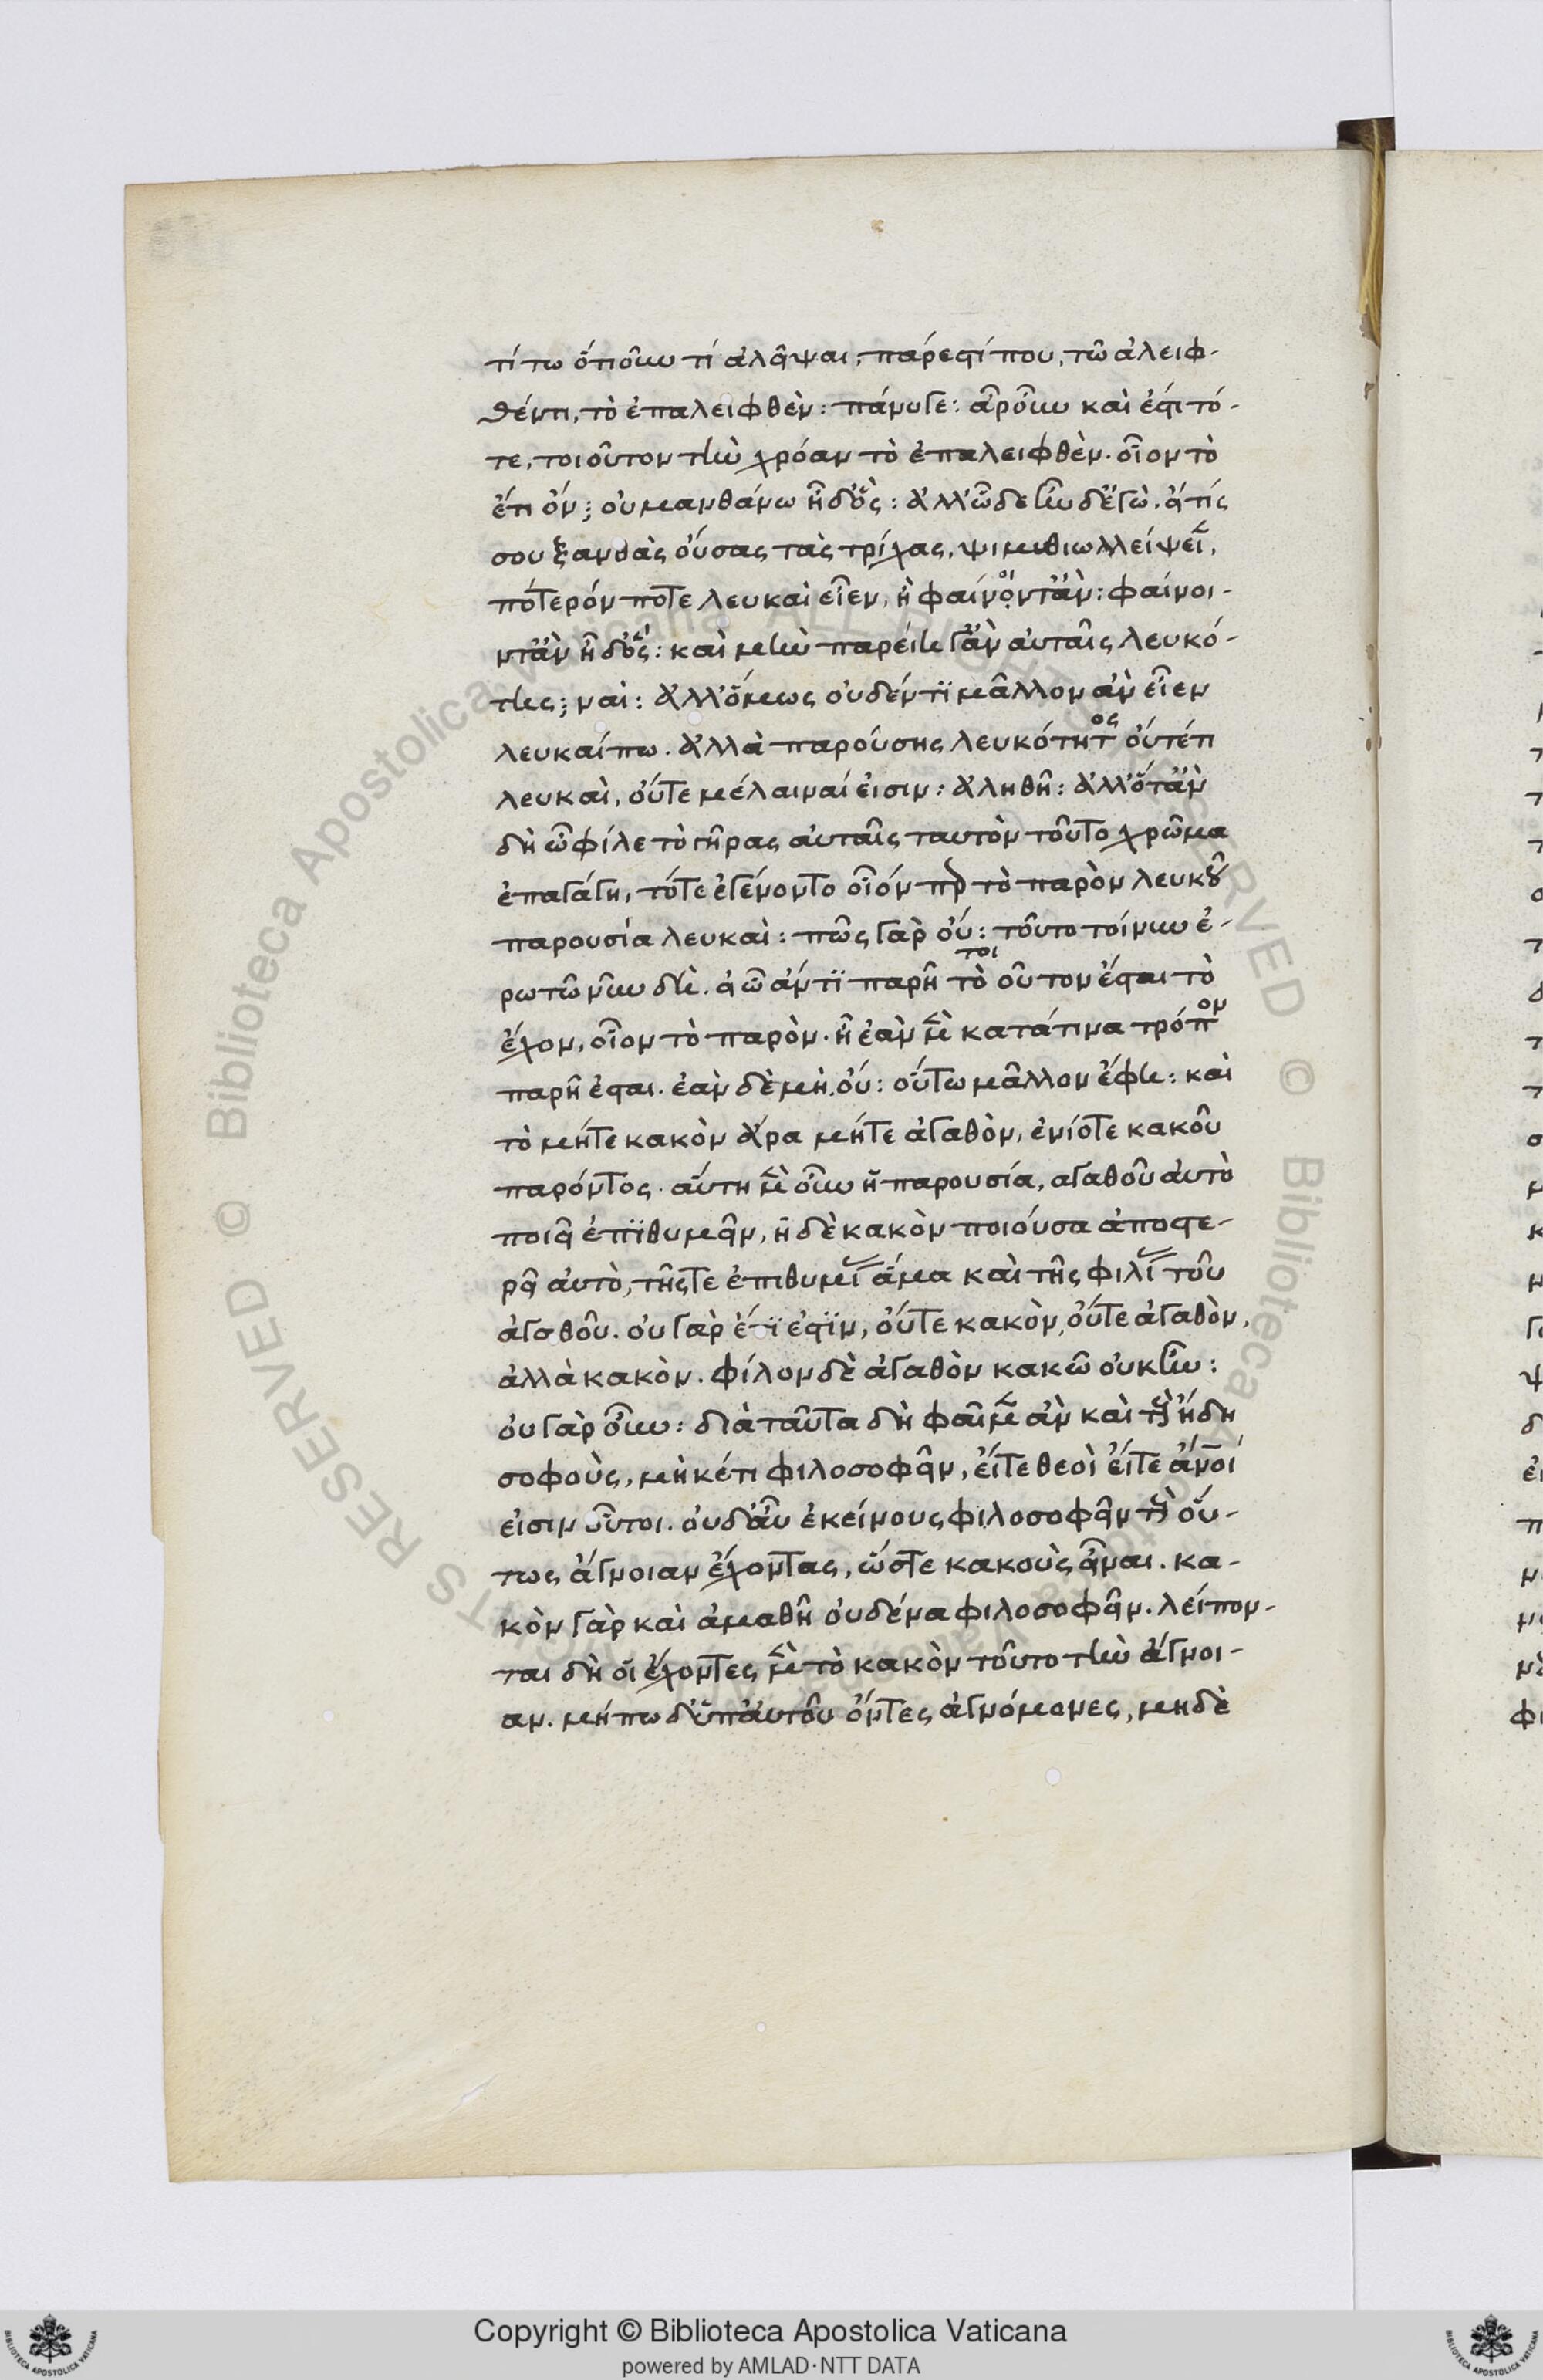 τί τω ὁτιοῦν τί ἀλεῖψαι, πάρεστί που, τῶ ἀλειφ-
θέντι, τὸ ἐπαλειφθὲν: πάνυγε: ἆρ' οὖν καὶ ἔστι τό-
τε, τοιοῦτον τὴν χρόαν τὸ ἐπαλειφθὲν. οἷον τὸ
ἔτι ὄν; οὐ μανθάνω ἦ δ' ὅς: ἀλλ' ὧδε ἦν δ' ἐγὼ. ἔι τίς
σου ξανθὰς οὔσας τὰς τρίχας, ψιμυθίω ἀλείψει,
πότερόν ποτε λευκαὶ εἶεν, ἢ φαίνοιντ' ἂν: φαίνοι-
ντ' ἂν ἦ δ' ὅς: καὶ μὴν παρείη γ' ἂν αὐταῖς λευκό-
της; ναὶ: ἀλλ' ὅμως οὐδέν τϊ μᾶλλον ἂν εἶεν
λευκαί πω. ἀλλὰ παρούσης λευκότητος οὔτέ τι
λευκαὶ, οὔτε μέλαιναί εἰσιν: ἀληθῆ: ἀλλ' ὅτ' ἂν
δὴ ὦ φίλε τὸ γῆρας αὐταῖς ταυτὸν τοῦτο χρῶμα
ἐπαγάγη, τότε ἐγένοντο οἷόν περ τὸ παρὸν λευκοῦ
παρουσία λευκαὶ: πῶς γὰρ οὔ: τοῦτο τοίνυν ἐ-
ρωτῶ νῦν δὴ. εἰ ὧ ἄν τϊ παρῆ τὸ τοιοῦτον ἔσται τὸ
ἔχον, οἷον τὸ παρὸν. ἢ ἐὰν μὲν κατά τινα τρόπον
παρῆ ἔσται. ἐὰν δὲ μὴ, οὔ: οὕτω μᾶλλον ἔφη: καὶ
τὸ μήτε κακὸν ἄρα μήτε ἀγαθὸν, ἐνίοτε κακοῦ
παρόντος. αὕτη μὲν οὖν ἡ παρουσία, αγαθοῦ αὐτὸ
ποιεῖ ἐπϊθυμεῖν, ἡ δὲ κακὸν ποιοῦσα ἀποστε-
ρεῖ αὐτὸ, τῆς τε ἐπιθυμίας ἅμα καὶ τῆς φιλίας τοῦ
ἀγαθοῦ. οὐ γὰρ ἔτϊ ἐστϊν, οὔτε κακὸν, οὔτε ἀγαθὸν,
ἀλλὰ κακὸν. φίλον δὲ ἀγαθὸν κακῶ οὐκ ἦν:
οὐ γὰρ οὖν: διὰ ταῦτα δὴ φαῖμεν ἂν καὶ τοὺς ἤδη
σοφοὺς, μὴκέτι φιλοσοφεῖν, εἴτε θεοὶ εἴτε ἄνοί
εἰσιν οὗτοι. οὐδ' ἂν ἐκείνους φιλοσοφεῖν τοὺς οὕ-
τως ἄγνοιαν ἔχοντας, ὥστε κακοὺς εἶναι. κα-
κὸν γὰρ καὶ ἀμαθῆ οὐδένα φιλοσοφεῖν. λείπον-
ται δὴ οἱ ἔχοντες μὲν τὸ κακὸν τοῦτο τὴν ἄγνοι-
αν. μήπω δ' ὑπ' αὐτοῦ ὄντες ἀγνόμονες, μηδὲ